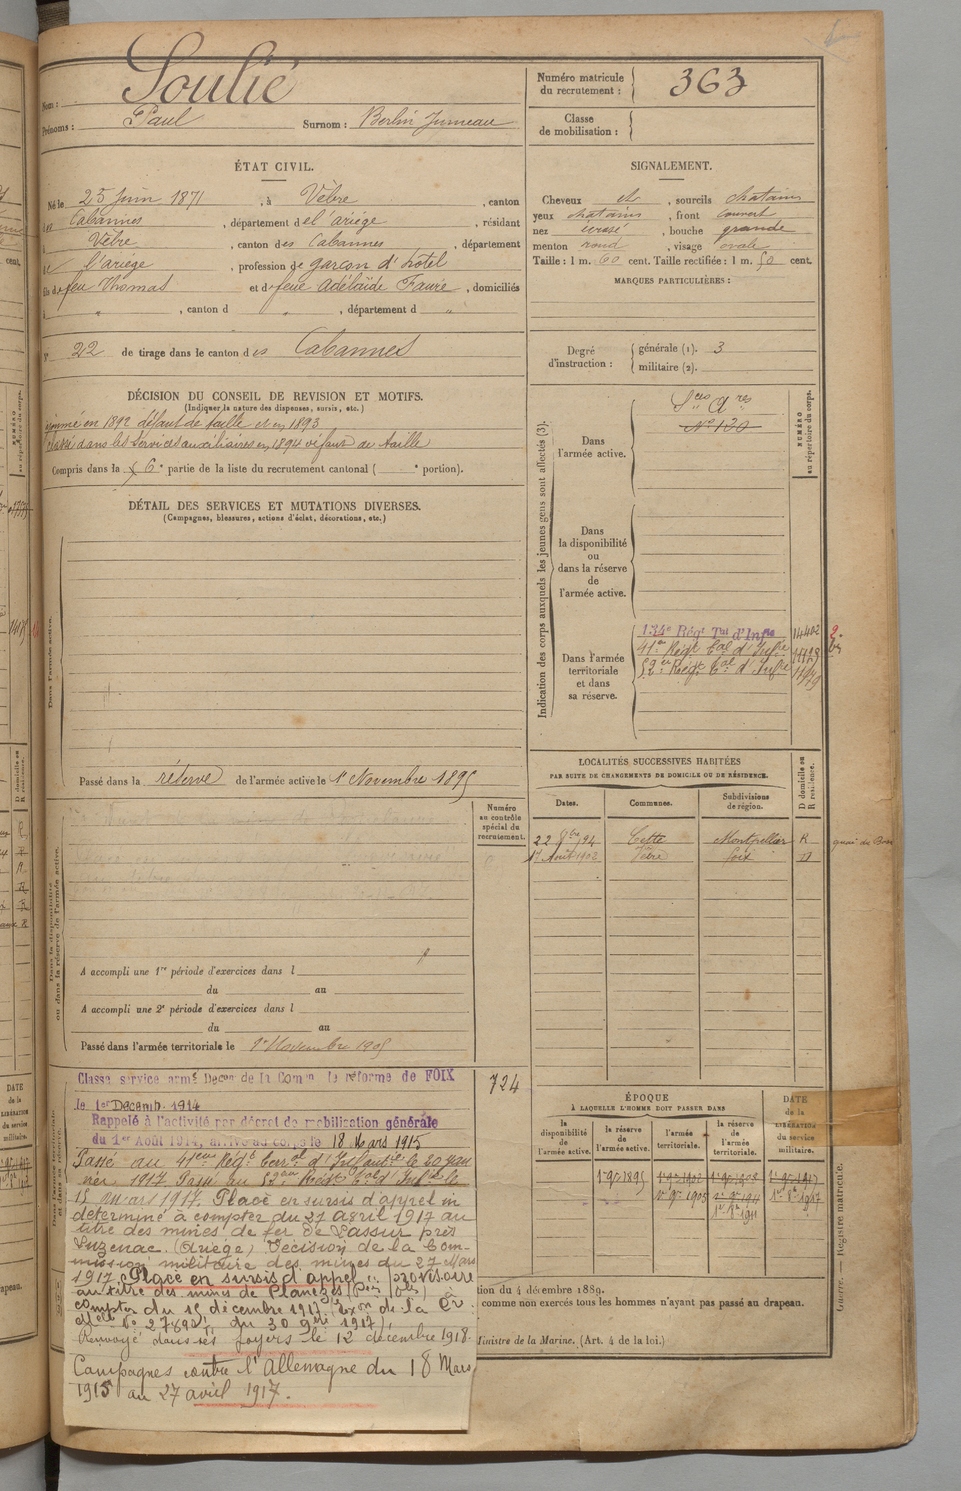 Nom : Soulié
Prénoms : Paul Surnom : Berlin Jumeau
Numéro matricule du recrutement : 363
Classe de mobilisation :
ÉTAT CIVIL.
Né le 25 Juin 1871, à Vèbre, canton
Cabannes, département de l'ariège, résidant
à Vèbre, canton des Cabannes, département
l'ariège, profession de garçon d'hotel
fils de feu Thomas et de feue Adélaïde Faure, domiciliés
à " , canton d " , département d "
N° 22 de tirage dans le canton des Cabannes
SIGNALEMENT.
Cheveux et, sourcils chatains
yeux chatains, front couvert
nez, bouche grande
menton rond, visage ovale
Taille : 1 m. 60 cent. Taille rectifiée : 1 m. 50 cent.
MARQUES PARTICULIÈRES :
Degré d'instruction : générale (1). 3
militaire (2).
DÉCISION DU CONSEIL DE REVISION ET MOTIFS.
(Indiquer la nature des dispenses, sursis, etc.)
ajourné en 1892 défaut de taille et en 1893
classé dans les services auxiliaires en 1894 défaut de taille
Compris dans la 6e partie de la liste du recrutement cantonal ( e portion).
DÉTAIL DES SERVICES ET MUTATIONS DIVERSES.
(Campagnes, blessures, actions d'éclat, décorations, etc.)
Dans l'armée active.
Passé dans la réserve de l'armée active le 1er Novembre 1895
Indication des corps auxquels les jeunes gens sont affectés (3).
NUMÉRO au répertoire du corps.
Dans l'armée active.
Sces Ares
N° 120
Dans la disponibilité ou dans la réserve de l'armée active.
Dans l'armée territoriale et dans sa réserve.
134e Régt Tal d'Infie 14402
41e Régt Tal d'Infie
52e Régt Tal d'Infie
LOCALITÉS SUCCESSIVES HABITÉES
PAR SUITE DE CHANGEMENTS DE DOMICILE OU DE RÉSIDENCE.
Dates. Communes. Subdivisions de région. D domicile ou R résidence.
22 8bre 94 Cette Montpellier R
17 Aout 1902 Vèbre Foix D
Dans la disponibilité ou dans la réserve de l'armée active.
Numéro au contrôle spécial du recrutement.
A accompli une 1re période d'exercices dans l
du au
A accompli une 2e période d'exercices dans l
du au
Passé dans l'armée territoriale le 1er Novembre 1905
724
Classé service armé Décon de la Comon de réforme de FOIX
le 1er Décemb. 1914
Rappelé à l'activité par décret de mobilisation générale
du 1er Août 1914, arrivé au corps le 18 Mars 1915
Passé au 41eme Régt Terral d'Infanterie le 20 Jan
vier 1917 Passé au 52eme Régt Tal d'Infie le
15 mars 1917. Placé en sursis d'appel in
déterminé à compter du 27 avril 1917 au
titre des mines de fer de Lassur près
Luzenac (Ariège) Décision de la Com-
mission militaire des mines du 27 Mars
1917. Placé en sursis d'appel provisoire
au titre des mines de Planèzes à
compter du 15 décembre 1917,
du 30 9bre 1917)
Renvoyé dans ses foyers le 12 décembre 1918.
Campagnes contre l'Allemagne du 18 Mars
1915 au 27 avril 1917.
ÉPOQUE
À LAQUELLE L'HOMME DOIT PASSER DANS
DATE de la LIBÉRATION du service militaire.
la disponibilité de l'armée active.
la réserve de l'armée active.
l'armée territoriale.
la réserve de l'armée territoriale.
1er 9bre 1895
tion du 4 décembre 1889.
comme non exercés tous les hommes n'ayant pas passé au drapeau.
Ministre de la Marine. (Art. 4 de la loi.)
Guerre. — Registre matricule.